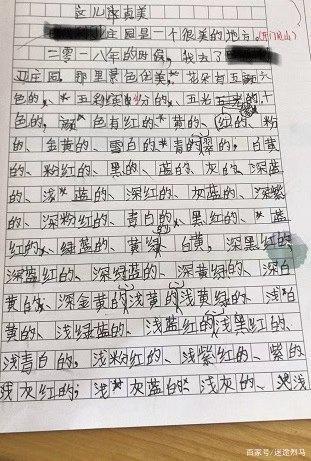 这儿真美
庄园是一个很美的地方。(开门见山)
二零一八年的时候，我去了
亚庄园，那里景色佳美，花朵有五颜六
色的、五彩缤纷的、五光十
色的，颜色有红的、黄的、红的、粉
的、金黄的、雪白的、青的、翠的，白黄
的、粉红的、黑的、蓝的、灰的、深蓝
的、浅蓝的、深红的、灰蓝的、深紫
的、深粉红的、青白的、黑红的、蓝
红的、绿蓝的、黄绿的、白黄、深黑红的、
深蓝红的、深绿蓝的、深黄绿的、深白
黄的、深金黄的、浅黄的、浅黄绿的、浅白
黄的、浅绿蓝的、浅蓝红的、浅黑红的、
浅青白的，浅粉红的、浅紫红的、紫的
浅灰红的；浅灰蓝的、浅灰的、浅
百家号/迷途烈马